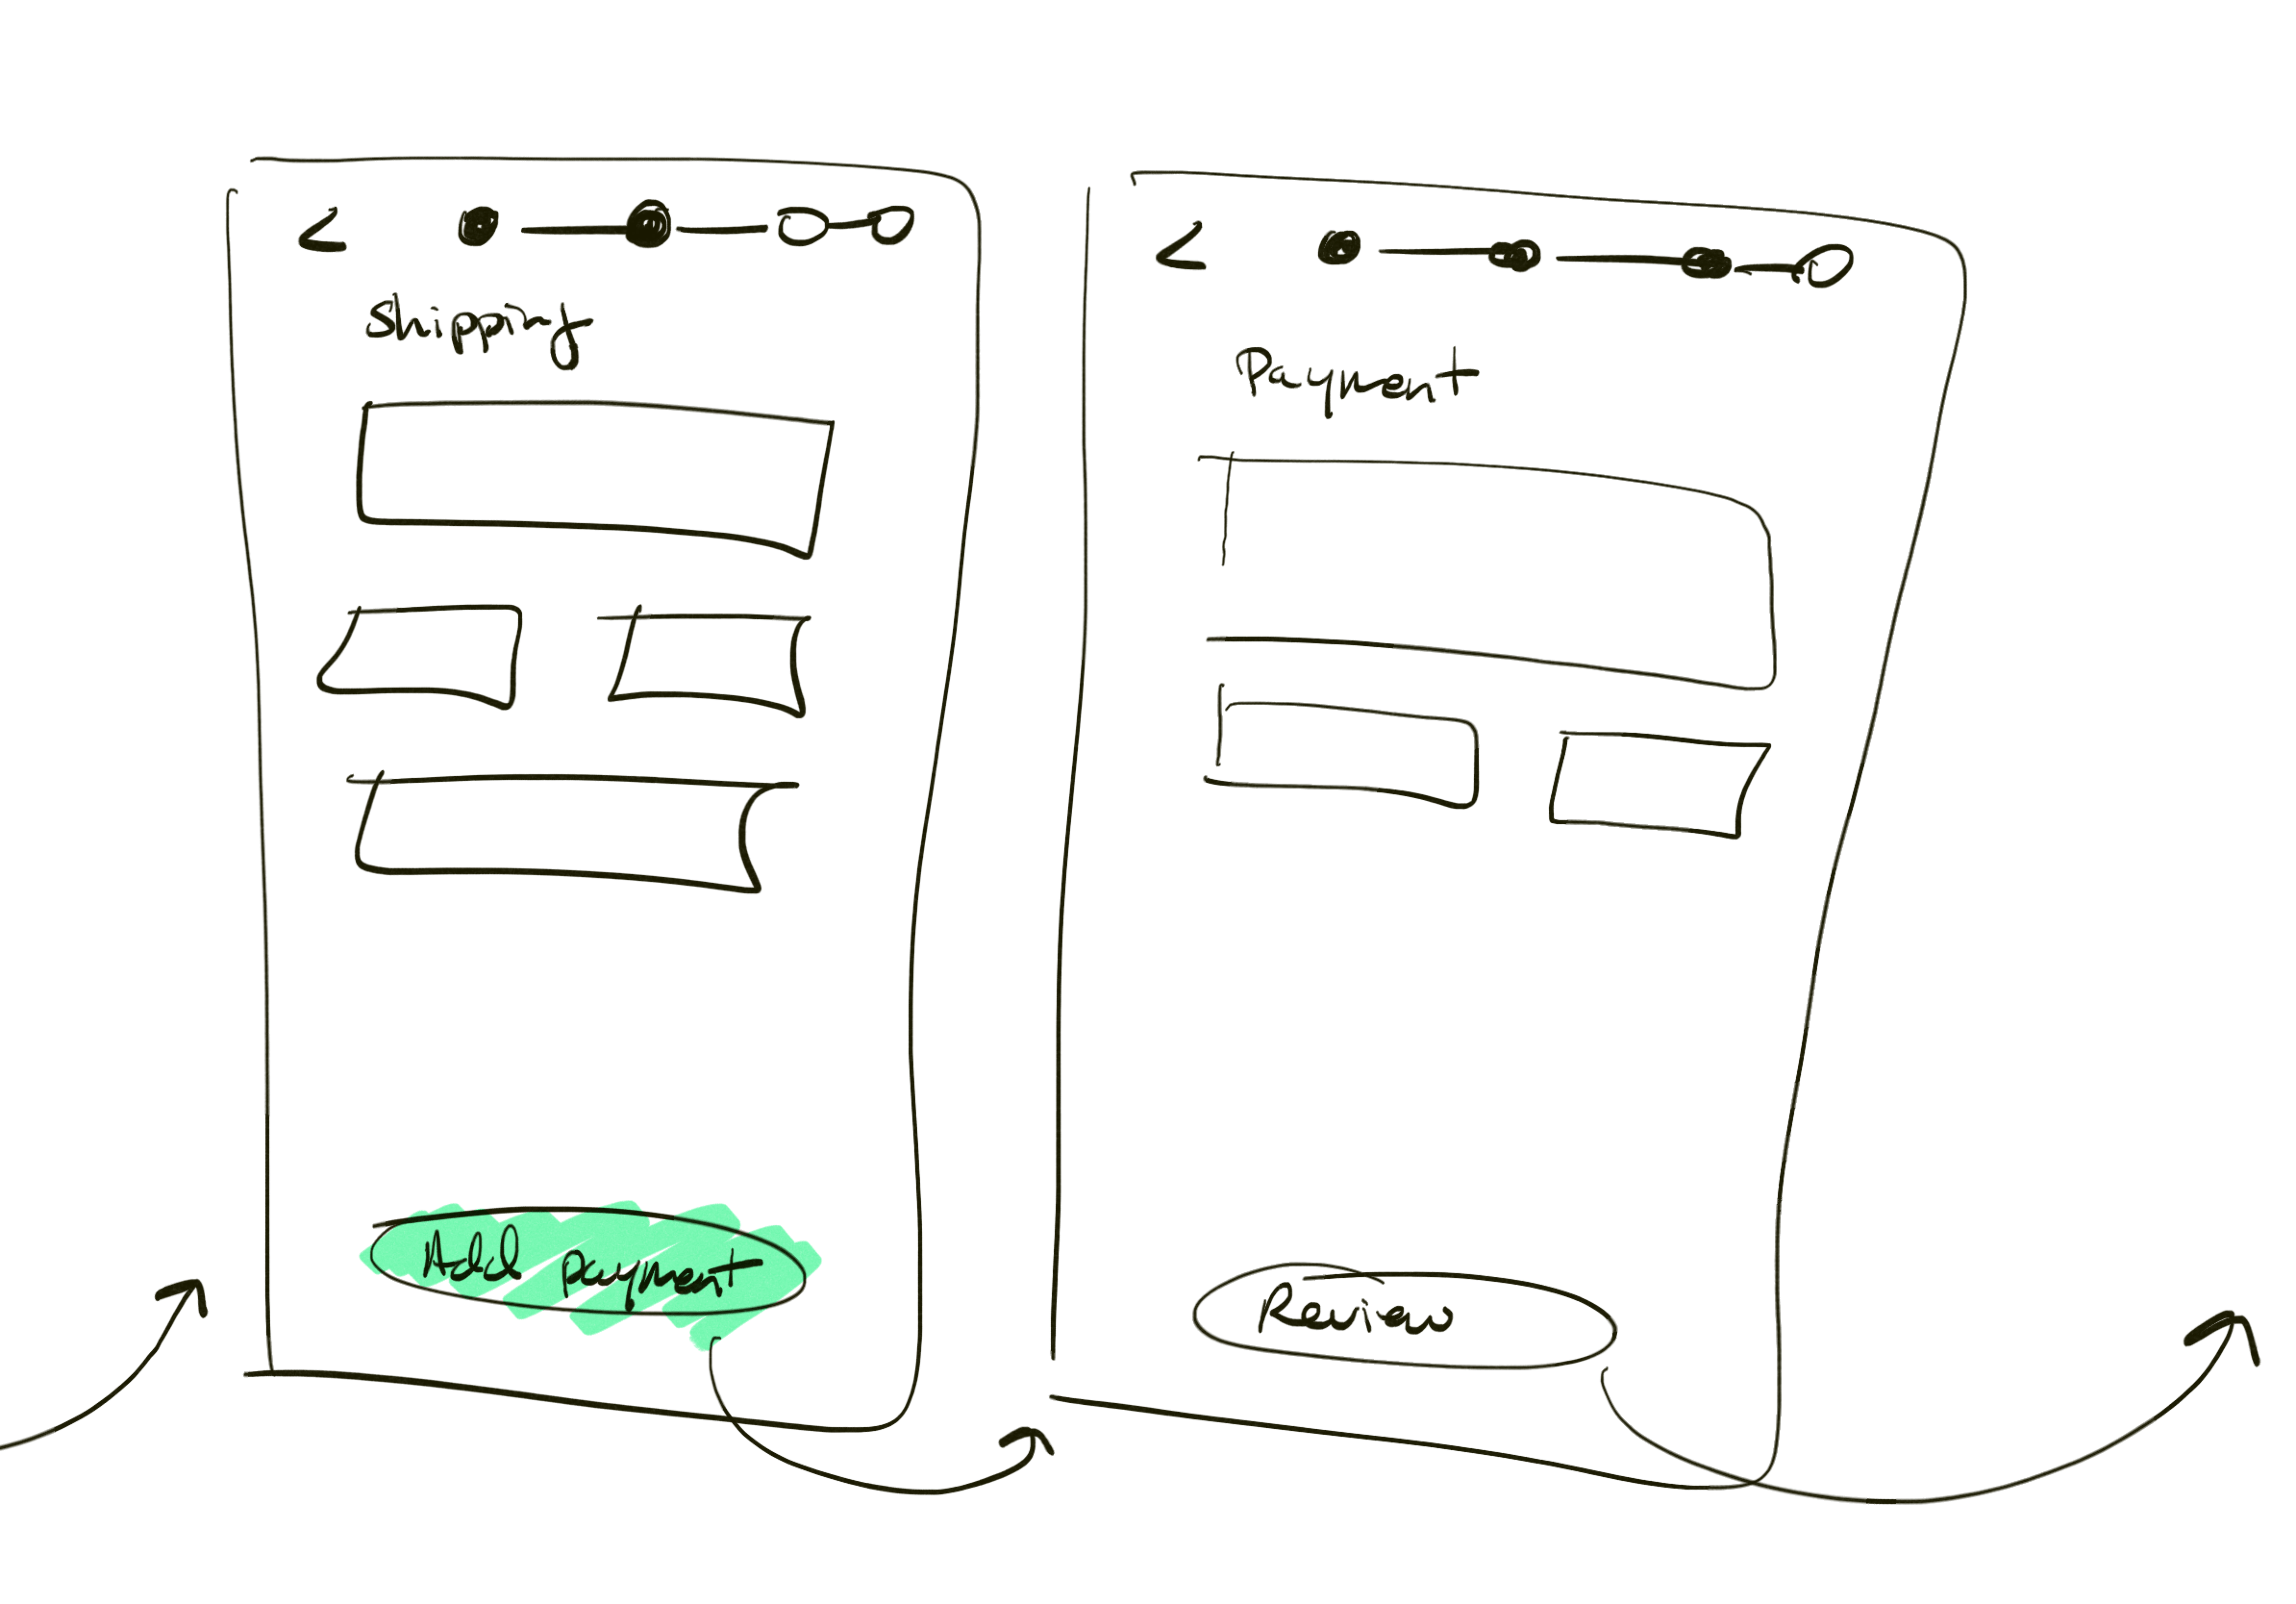 <
shipping
Add payment
<
Payment
Review